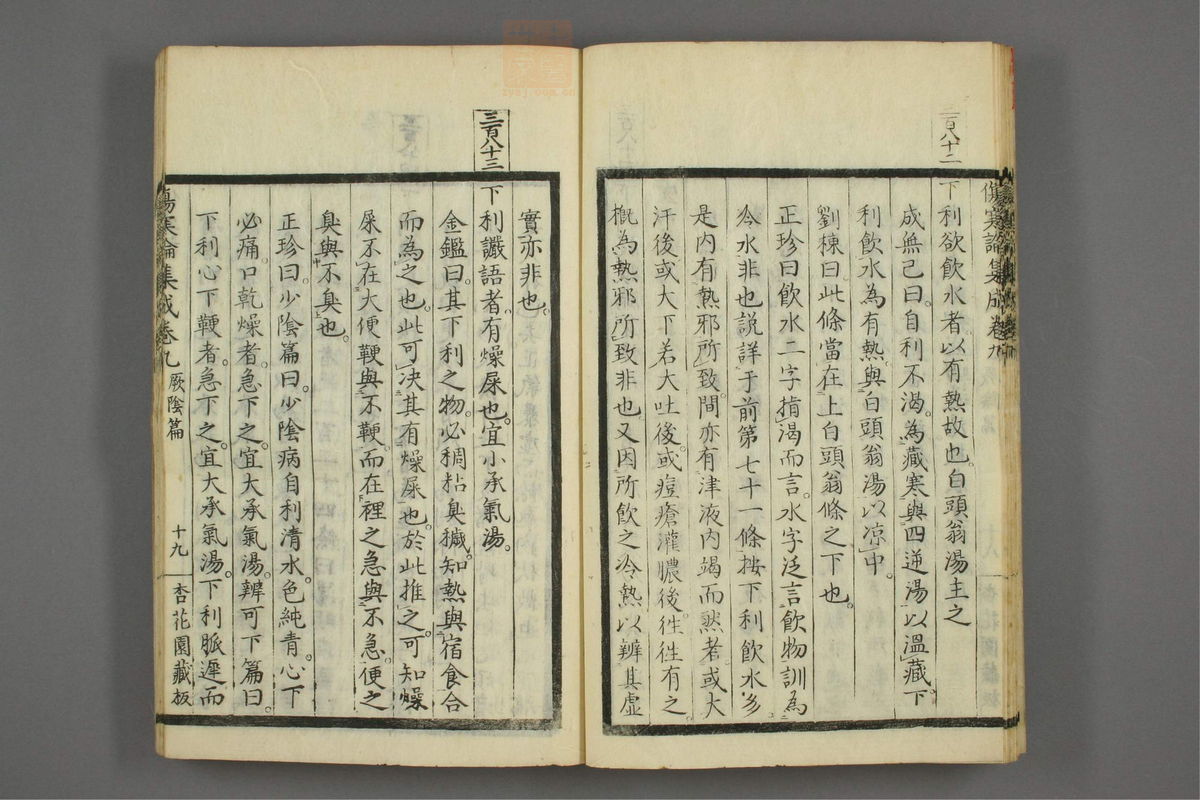 三百八十二
下利欲飲水者以有熱故也白頭翁湯主之
成無己曰自利不渴為藏寒與四逆湯以溫藏下
利飲水為有熱與白頭翁湯以凉中
劉棟曰此條當在上白頭翁條之下也
正珍曰飲水二字揹渴而言水字泛言飲物訓為
冷水非也說詳于前第七十一條按下利飲水多
是內有熱邪所致間亦有津液內竭而然者或大
汗後或大下若大吐後或痘瘡灌膿後徃徃有之
概為熱邪所致非也又因所飲之冷熱以辨其虛
傷寒論集成卷九
實亦非也
三百八十三
下利讝語者有燥屎也宜小承氣湯
金鑑曰其下利之物必稠粘臭穢知熱與宿食合
而為之也此可決其有燥屎也於此推之可知燥
屎不在大便鞕與不鞕而在裡之急與不急便之
臭與不臭也
正珍曰少陰篇曰少陰病自利清水色純青心下
必痛口乾燥者急下之宜大承氣湯辨可下篇曰
下利心下鞕者急下之宜大承氣湯下利脈遲而
傷寒論集成卷九 厥陰篇 十九 杏花園藏板